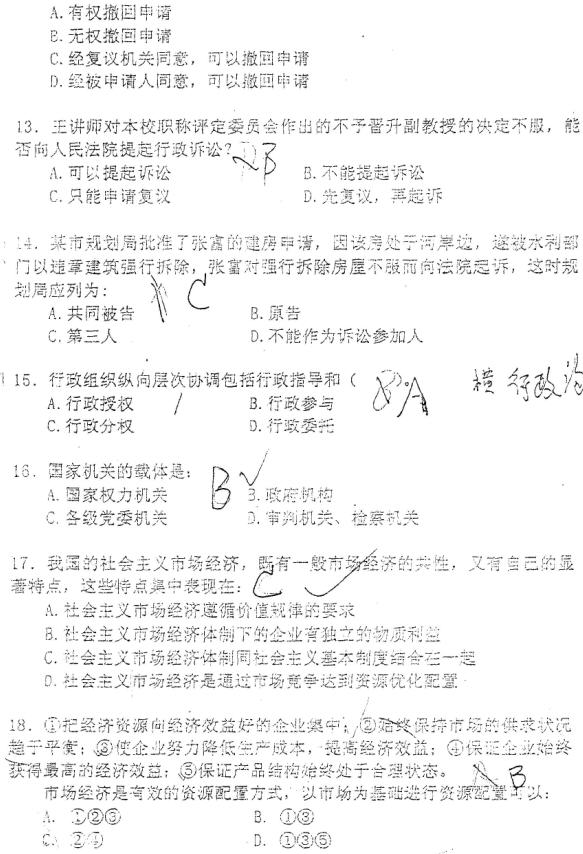 A.有权撤回申请
B.无权撤回申请
C.经复议机关同意，可以撤回申请
D.经被申请人同意，可以撤回申请
13．王讲师对本校职称评定委员会作出的不予晋升副教授的决定不服，能
否向人民法院提起行政诉讼？ B
A.可以提起诉讼 B.不能提起诉讼
C.只能申请复议 D.先复议，再起诉
14．某市规划局批准了张富的建房申请，因该房处于河岸边，遂被水利部
门以违章建筑强行拆除，张富对强行拆除房屋不服而向法院起诉，这时规
划局应列为： C
A.共同被告 B.原告
C.第三人 D.不能作为诉讼参加人
15．行政组织纵向层次协调包括行政指导和（ ）。A 横 行政
A.行政授权 B.行政参与
C.行政分权 D.行政委托
16．国家机关的载体是： B
A.国家权力机关 B.政府机构
C.各级党委机关 D.审判机关、检察机关
17．我国的社会主义市场经济，既有一般市场经济的共性，又有自己的显
著特点，这些特点集中表现在： C
A.社会主义市场经济遵循价值规律的要求
B.社会主义市场经济体制下的企业有独立的物质利益
C.社会主义市场经济体制同社会主义基本制度结合在一起
D.社会主义市场经济是通过市场竞争达到资源优化配置
18．①把经济资源向经济效益好的企业集中；②始终保持市场的供求状况
趋于平衡；③使企业努力降低生产成本，提高经济效益；④保证企业始终
获得最高的经济效益；⑤保证产品结构始终处于合理状态。 B
市场经济是有效的资源配置方式，以市场为基础进行资源配置可以：
A. ①②③ B. ①③
C. ②④ D. ①③⑤